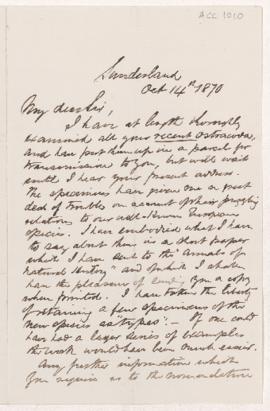 ACC 1010
Sunderland
Oct 14th 1870
My dear Sir,
I have at length thoroughly
examined all your recent Ostracoda,
and have put them up in a parcel for
transmission to you, but will wait
until I hear your present address.
The specimens have given me a great
deal of trouble on account of their puzzling
relations to our well-known European
species. I have embodied what I have
to say about them in a short paper
which I have sent to the "Annals of
Natural History" and of which I shall
have the pleasure of sending you a copy
when printed. I have taken the liberty
of retaining a few specimens of the
new species as "types". — If one could
have had a larger series of examples
the work would have been much easier.
Any further information which
you require as to the nomenclature